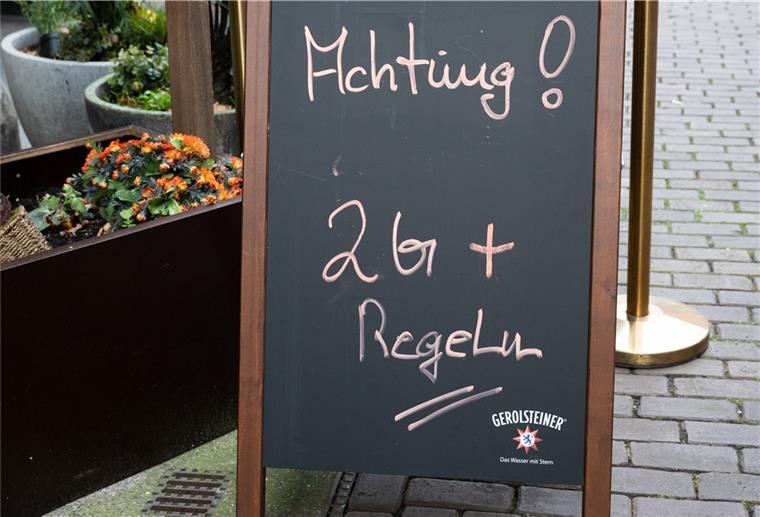 Achtung!
2G+
Regeln
GEROLSTEINER®
Das Wasser mit Stern